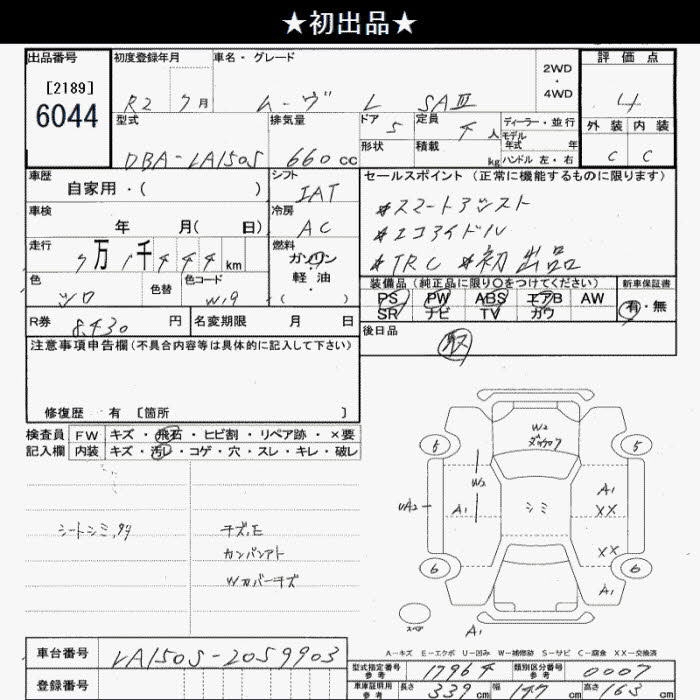 ★初出品★
出品番号 初度登録年月 車名・グレード 2WD・4WD 評価点
[2189]
6044
R2 7月 ムーヴ L SAⅢ 4
型式 排気量 ドア 5 定員 4人 ディーラー・並行 外装 内装
モデル年式 年
DBA-LA150S 660cc 形状 積載 kg ハンドル 左・右 C C
車歴 シフト セールスポイント(正常に機能するものに限ります)
自家用・( ) IAT
*スマートアシスト
車検 冷房
年 月( 日) AC
*エコアイドル
走行 燃料
7万1千444km ガソリン
*TRC *初出品
色 色替 色コード 軽・油
ソロ W19 ( )
装備品(純正品に限り○をつけてください) 新車保証書
PS PW ABS エアB AW 有・無
SR ナビ TV カワ
R券 8430円 名変期限 月 日
後日品
取
注意事項申告欄(不具合内容等は具体的に記入して下さい)
修復歴 有 [箇所 ]
検査員 FW キズ・飛石・ヒビ割・リペア跡・×要
記入欄 内装 キズ・汚レ・コゲ・穴・スレ・キレ・破レ
シートシミ,
カンバンアト
Wカバーキズ
W2
5 5
W2
A1
UA2 A1 シミ XX
XX
6 6
A1
スペア
A1
A-キズ E-エクボ U-凹み W-補修跡 S-サビ C-腐食 XX-交換済
車台番号 LA150S-2059903
登録番号
型式指定番号 参考 17964 類別区分番号 参考 0007
車庫証明用 参考 長さ 339cm 幅 147cm 高さ 163cm